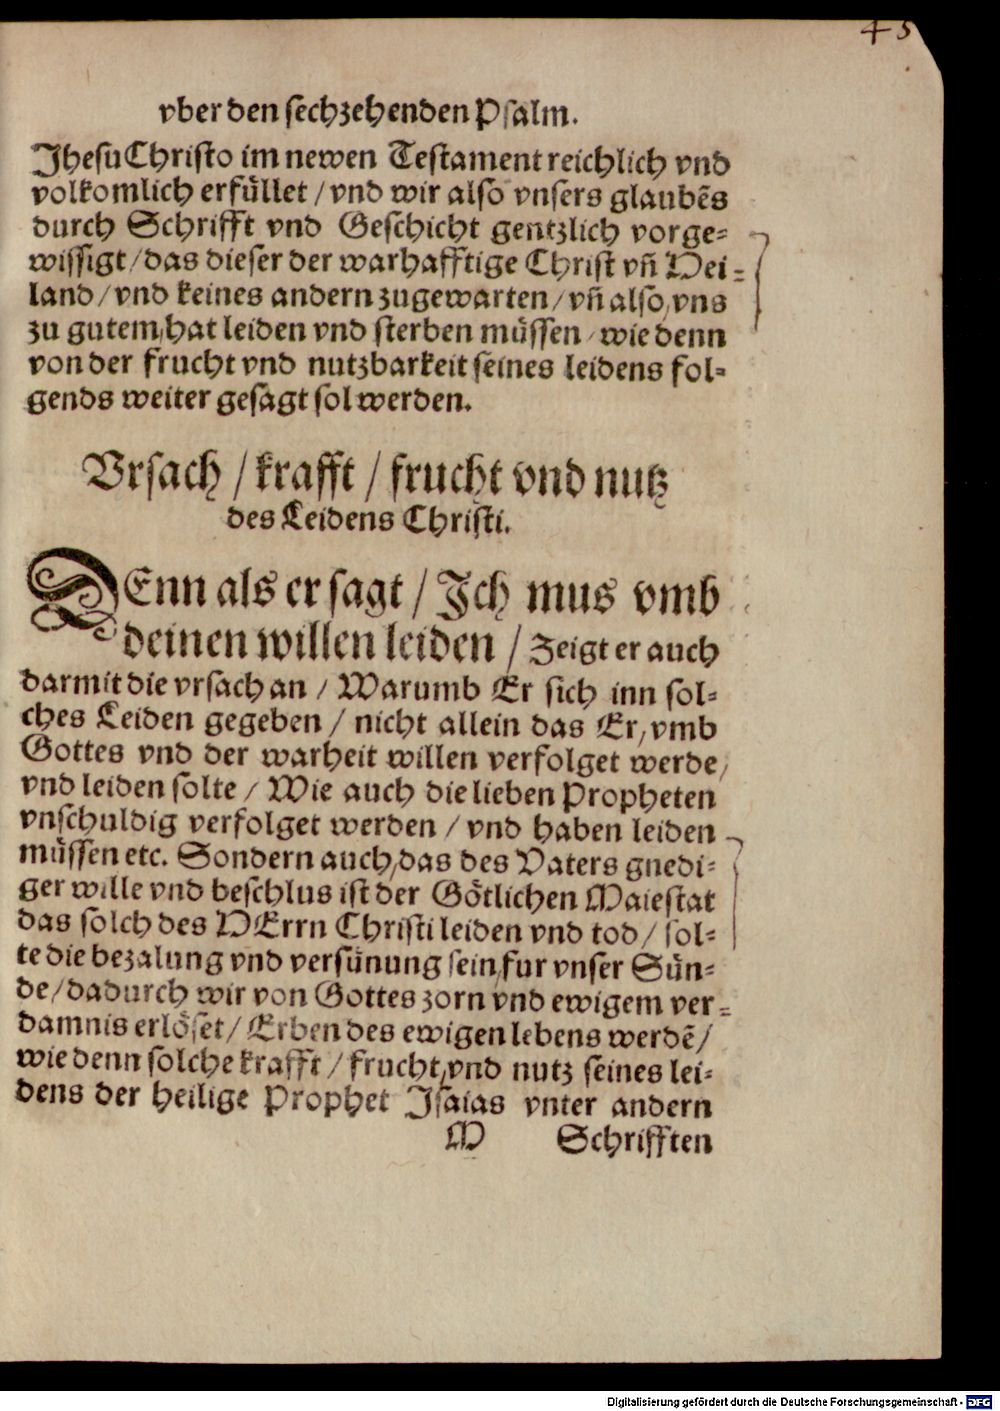 45
vber den sechzehenden Psalm.
Jhesu Christo im newen Testament reichlich vnd
volkomlich erfüllet / vnd wir also vnsers glaubẽs
durch Schrifft vnd Geschicht gentzlich vorge-
wissigt / das dieser der warhafftige Christ vñ Hei-
land / vnd keines andern zugewarten / vñ also, vns
zu gutem, hat leiden vnd sterben müssen / wie denn
von der frucht vnd nutzbarkeit seines leidens fol-
gends weiter gesagt sol werden.
Vrsach / krafft / frucht vnd nutz
des Leidens Christi.
DEnn als er sagt / Jch mus vmb
deinen willen leiden / Zeigt er auch
darmit die vrsach an / Warumb Er sich inn sol-
ches Leiden gegeben / nicht allein das Er, vmb
Gottes vnd der warheit willen verfolget werde,
vnd leiden solte / Wie auch die lieben Propheten
vnschuldig verfolget werden / vnd haben leiden
müssen etc. Sondern auch, das des Vaters gnedi-
ger wille vnd beschlus ist der Götlichen Maiestat
das solch des HErrn Christi leiden vnd tod / sol-
te die bezalung vnd versünung sein, fur vnser Sün-
de / dadurch wir von Gottes zorn vnd ewigem ver-
damnis erlöset / Erben des ewigen lebens werdẽ /
wie denn solche krafft / frucht, vnd nutz seines lei-
dens der heilige Prophet Jsaias vnter andern
M Schrifften
Digitalisierung gefördert durch die Deutsche Forschungsgemeinschaft - DFG